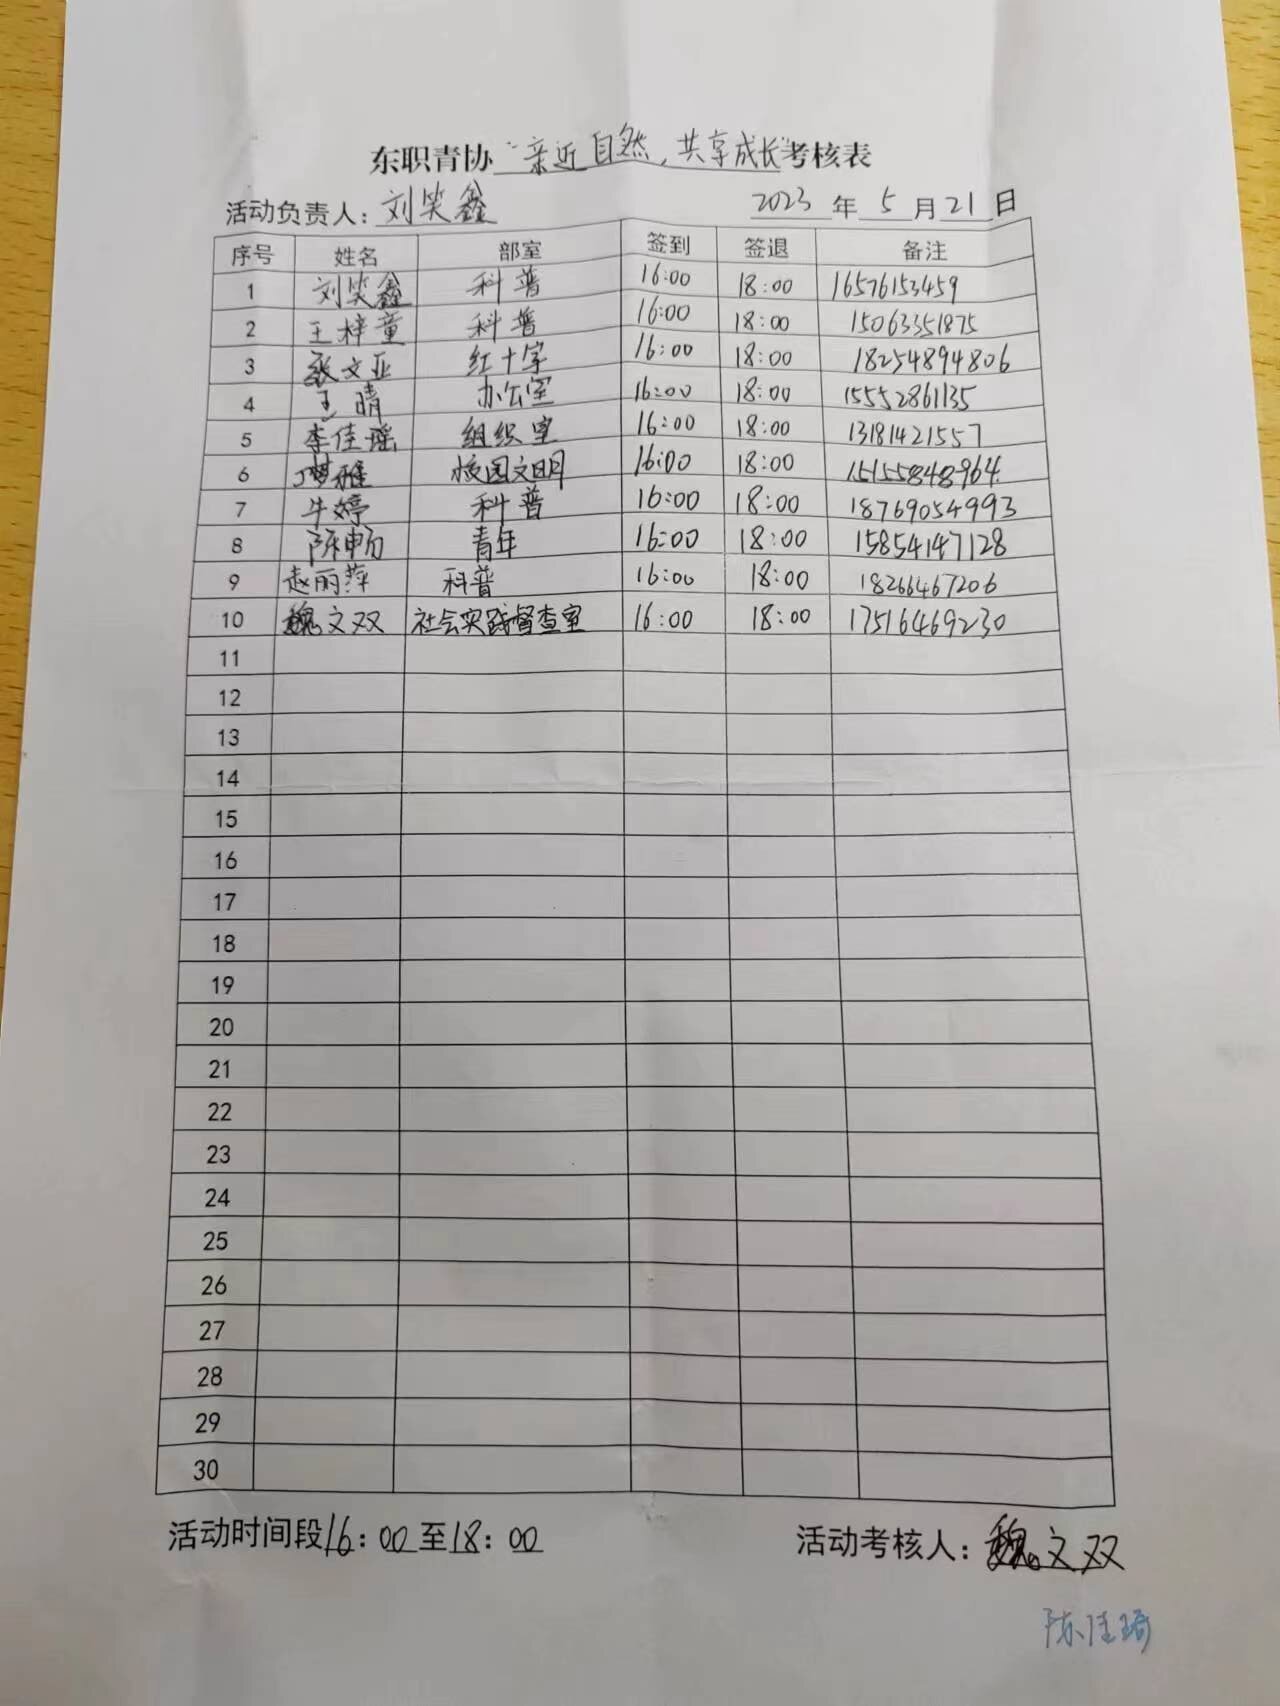 东职青协“亲近自然，共享成长”考核表
活动负责人：刘笑鑫 2023年5月21日
序号 姓名 部室 签到 签退 备注
1 刘笑鑫 科普 16:00 18:00 16576153459
2 王梓童 科普 16:00 18:00 15063351875
3 张文亚 红十字 16:00 18:00 18254894806
4 王晴 办公室 16:00 18:00 15552861135
5 李佳瑶 组织室 16:00 18:00 13181421557
6 丁梦雅 校园文明 16:00 18:00 15155848964
7 牛婷 科普 16:00 18:00 18769054993
8 陈畅 青年 16:00 18:00 15854147128
9 赵丽萍 科普 16:00 18:00 18266467206
10 魏文双 社会实践督查室 16:00 18:00 17516469230
11
12
13
14
15
16
17
18
19
20
21
22
23
24
25
26
27
28
29
30
活动时间段16：00至18：00 活动考核人：魏文双
陈佳琦